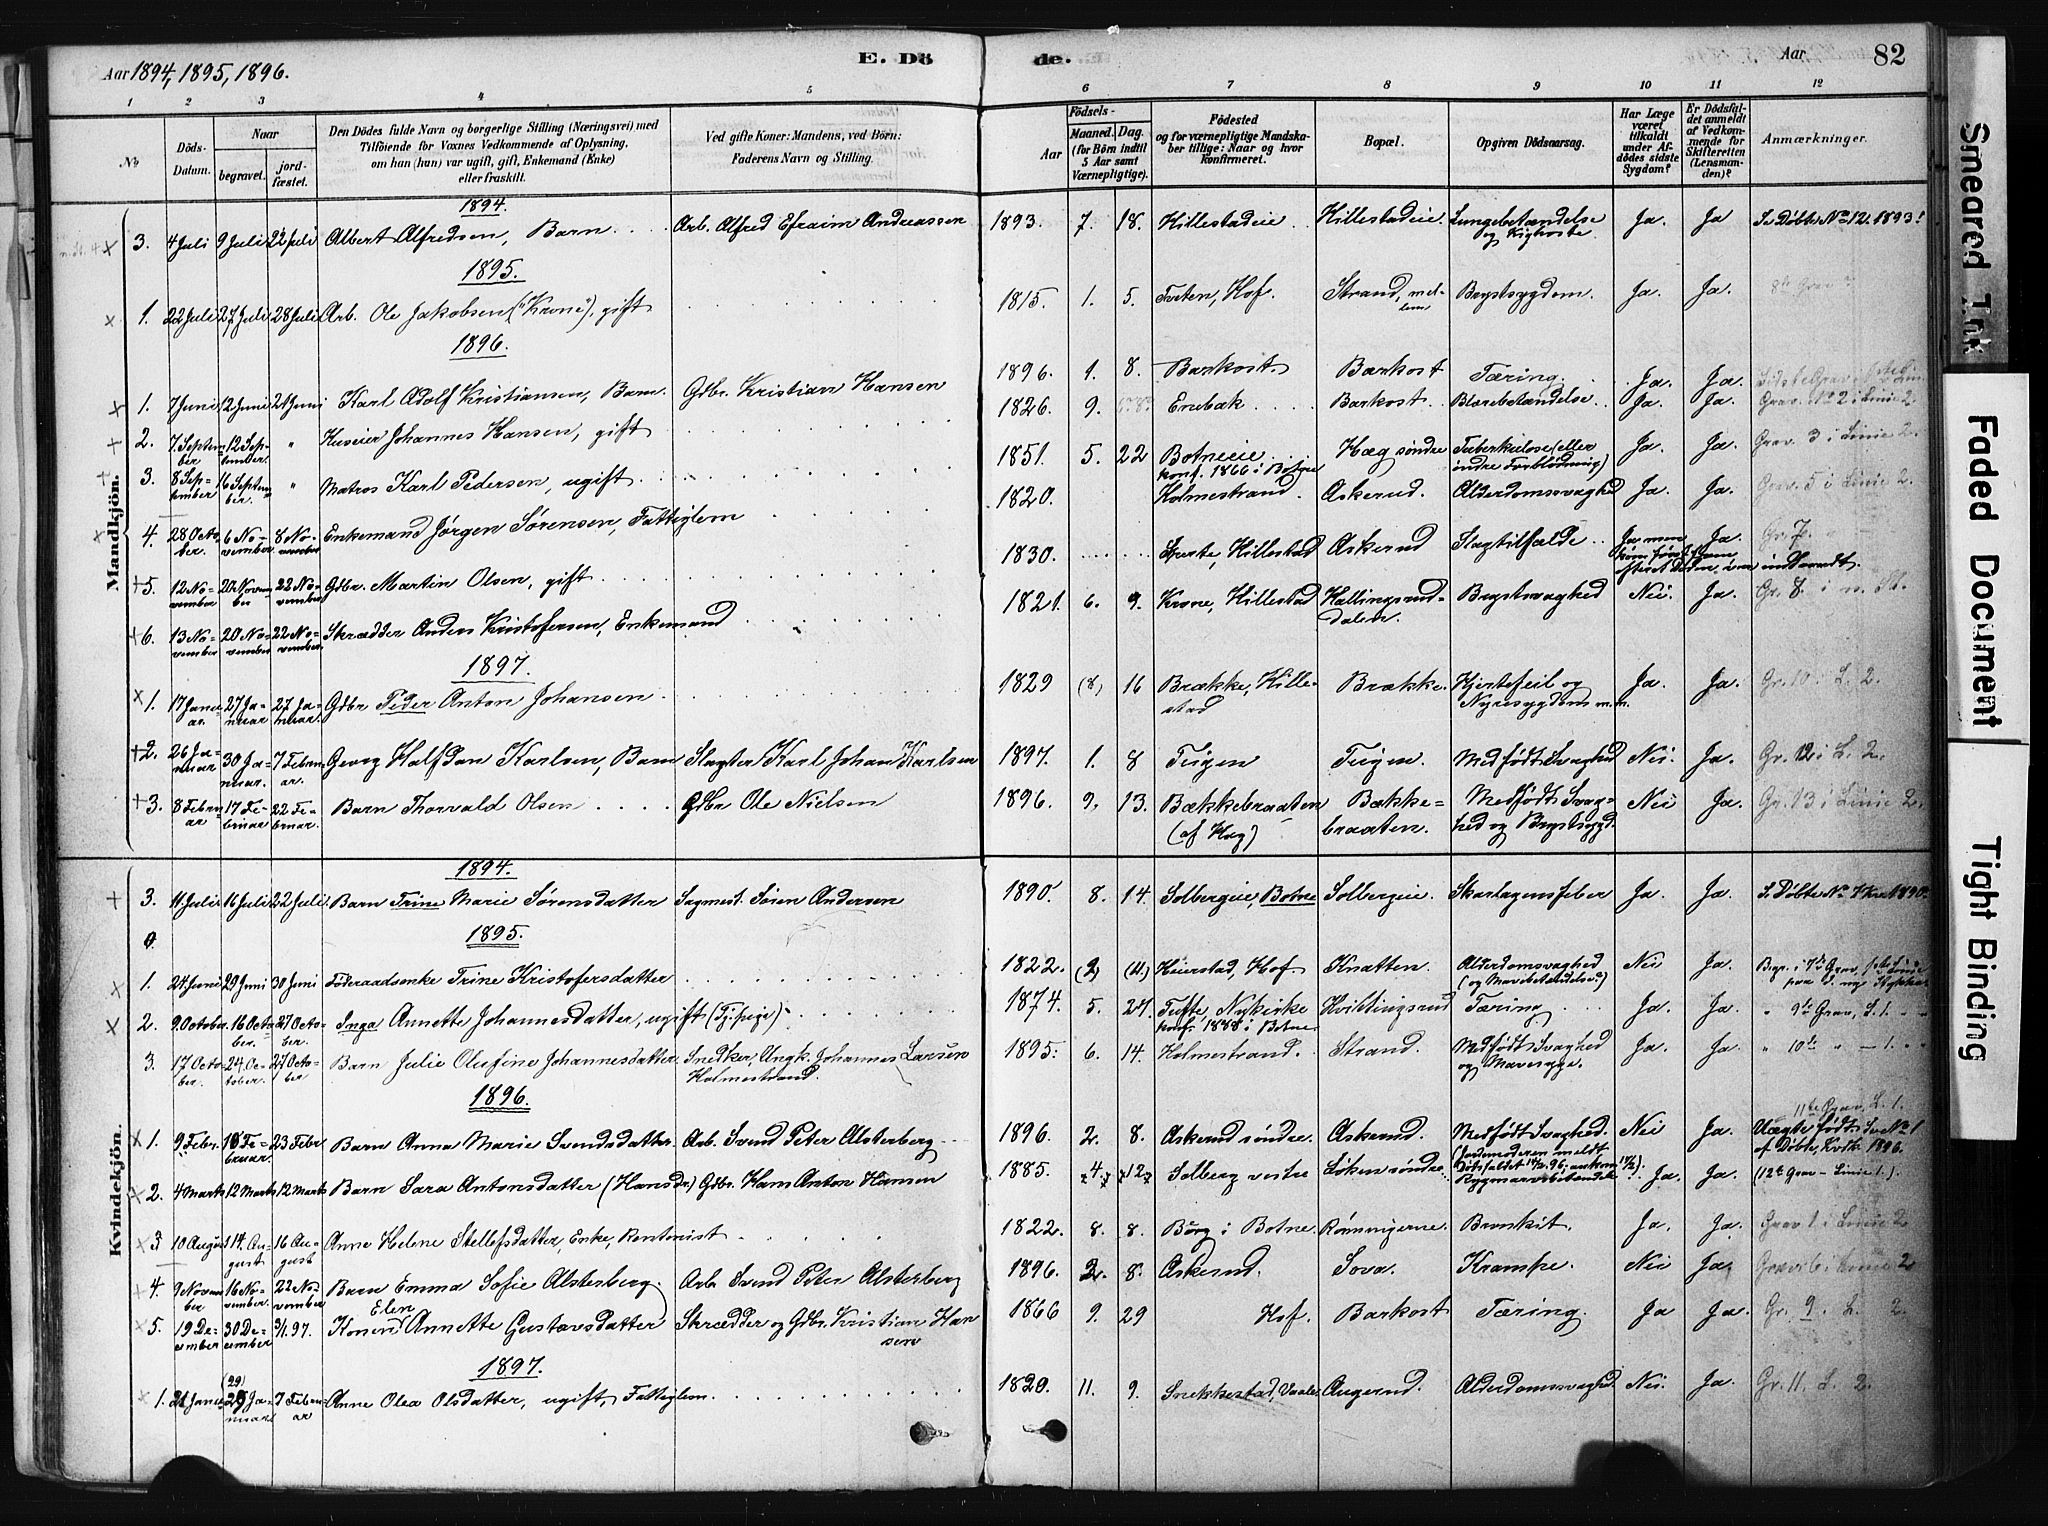 Aar 1894, 1895, 1896.
E. Dö
de.
Aar
82
1 2 3 4 5
6 7 8 9 10 11 12
No
Döds-Datum.
Naar
begravet.
jordfæstet.
Den Dödes fulde Navn og borgerlige Stilling (Næringsvei) med
Tilföiende for Voxnes Vedkommende af Oplysning,
om han (hun) var ugift, gift, Enkemand (Enke)
eller fraskilt.
Ved gifte Koner: Mandens, ved Börn:
Faderens Navn og Stilling.
Födsels-
Aar
Maaned. Dag.
(for Börn indtil
5 Aar samt
Værnepligtige).
Födested
og for værnepligtige Mandska-
ber tillige: Naar og hvor
konfirmeret.
Bopæl.
Opgiven Dödsaarsag.
Har Læge
været
tilkaldt
under Af-
dödes sidste
Sygdom?
Er Dödsfal-
det anmeldt
af Vedkom-
mende for
Skifteretten
(Lensman-
den)?
Anmærkninger.
Mandkjön.
1894.
3. 4 Juli 9 Juli 22 Juli Albert Alfredsen, Barn Arb. Alfred Efraim Andreassen 1893. 7. 18. Hillestadeie Hillestadeie. Lungebetændelse og Kighoste. Ja. Ja S. Döbte No 12. 1893!
1895.
1. 22 Juli 27 Juli 28 Juli Arb. Ole Jakobsen ("Krone"), gift 1815. 1. 5. Tveten, Hof. Strand, mellem Brystsygdom. Ja. Ja. 8de Grav
1896.
1. 7 Juni 12 Juni 21 Juni Karl Adolf Kristiansen, Barn. Gdbr. Kristian Hansen 1896. 1. 8. Barkost. Barkost Tæring. Ja. Ja.
2. 7. September 12 September. " Huseier Johannes Hansen, gift 1826. 9. Enebak Barkost. Blærebetændelse. Ja. Ja. Grav. No 2 i Linie 2.
3. 8 September 16 September. " Matros Karl Pedersen, ugift 1851. 5. 22 Botneeie konf. 1866 i Botne Hæg söndre Tuberkulose (eller indre Forblödning) Ja Ja. Grav 3 i Linie 2.
4. 28 October. 6 November 8 November Enkemand Jörgen Sörensen, Fattiglem 1820. Holmestrand. Askerud. Alderdomssvaghed Ja. Ja. Grav. 5 i Linie 2.
5. 12 November 20 November 22 November Gdbr. Martin Olsen, gift 1830. Hillestad Askerud Slagtilfælde Ja men kom först frem efteat Döden, var indtraadt. Ja. Gr. 7.
6. 13 November 20 November 22 November. Skrædder Anders Kristofersen, Enkemand 1821. 6. 9. Krone, Hillestad Hallingsruddalen. Brystsvaghed Nei. Ja. Gr. 8. i
1897.
1. 17 Januar. 27 Januar 27 Januar. Gdbr Peder Anton Johansen 1829 (8) 16 Brække, Hillestad Brække. Hjertefeil og Nyresygdom m.m. Ja. Ja. Gr. 10 i L. 2.
2. 26 Januar 30 Januar. 7 Februar. Georg Halfdan Karlsen, Barn Slagter Karl Johan Karlsen 1897. 1. 8 Teigen Teigen. Medfödt Svaghed Nei. Ja. Gr. 12 i L. 2.
3. 8 Februar 17 Februar 22 Februar. Barn Thorvald Olsen Gdbr Ole Nielsen 1896. 9. 13. Bækkebraaten (af Hæg) Bækkebraaten. Medfödt Svaghed og Brystsygd. Nei Ja. Gr. 13 i Linie 2.
Kvindekjön.
1894.
3. 11 Juli 16 Juli 22 Juli. Barn Trine Marie Sörensdatter Sagmest. Sören Andersen 1890. 8. 14. Solbergeie, Botne Solbergeie. Skarlagensfeber Ja. Ja. S. Döbte No 7 Kv. 1890.
0.
1895.
1. 24 Juni 29 Juni 30 Juni Föderaadsenke Trine Kristofersdatter 1822. (2) (4.) Heierstad, Hof Knatten. Alderdomssvaghed (og Mavebetændelse.) Nei Ja.
2. 9 October 16 October. 27 October. Inga Annette Johannesdatter, ugift (Tj. pige) 1874. 5. 27. Tufte, Nykirke konf. 1888 i Botne Kvittingsrud Tæring Ja. Ja. " 9de Grav, L. 1.
3. 17 October. 24 October. 27 October Barn Julie Olufine Johannesdatter. Snedker, Ungk. Johannes Larsen Holmestrand. 1895. 6. 14. Holmestrand. Strand. Medfödt Svaghed og Mavesyge. Ja. Ja. " 10de " — 1.
1896.
11te Grav, L. 1.
1. 9 Febr. 18 Februar. 23 Febr Barn Anna Marie Svendsdatter. Arb. Svend Peter Alsterberg 1896. 2. 8. Askerud söndre. Askerud. Medfödt Svaghed. (Jordemoderen meldt Dödsfaldet Nei Ja. Uægte Födt. S. No 1 af Döbte, Kvk. 1896.
2. 4 Marts 12 Marts 12 Marts Barn Sara Antonsdatter (Hansdr.) Gdbr. Hans Anton Hansen 1885. 4. 12. Solberg vestre Löken söndre. Rygmarvsbetændelse Ja. Ja. (12te Grav – Linie 1.).
3 10 August 14. August 16 August Anne Helene Stellefsdatter, Enke, Rentenist 1822. 8. 8. Borg i Botne Rönningerne. Bronkit. Ja. Ja. Grav 1 i Linie 2
4. 9 November 16 November. 22 November Barn Emma Sofie Alsterberg. Arb Svend Peter Alsterberg 1896. 2. 8. Askerud. Sova. Krampe. Nei Ja. Grav 6 i Linie 2
5. 19 December 30 December 3/1 97. Konen Elen Annette Gustavsdatter Skrædder og Gdbr. Kristian Hansen 1866 9. 29 Hof. Barkost Tæring. Ja Ja. Gr. 9. L. 2.
1897.
1. 21 Januar (29) Januar. 7 Februar Anne Olea Olsdatter, ugift, Fattiglem. 1820. 11. 9. Snekkestad, Vaale Angerud. Alderdomssvaghed. Nei. Ja. Gr. 11. L. 2.
Smeared Ink
Faded Document
Tight Binding